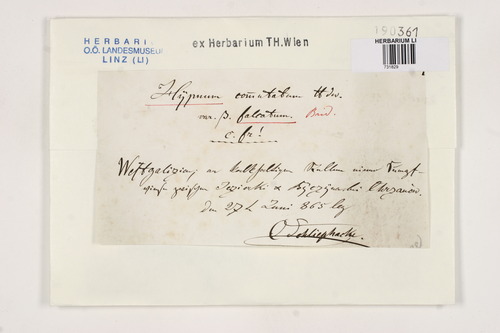 HERBARI
O.Ö. LANDESMUSEUM
LINZ (LI)
ex Herbarium TH.Wien
190361
HERBARIUM LI
Hypnum commutatum Hdw.
var. β. falcatum. Brid.
c. fr!
Westgalizien, an kalkhaltigen Stellen einer
zwischen Jeziorki & Chrzanów.
den 27t Juni 865 leg
Schliephacke